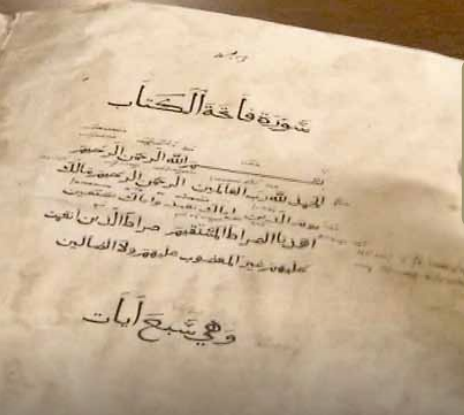 سورة فاتحة الكتاب
بسم الله الرحمن الرحيم
الحمد لله رب العالمين الرحمن الرحيم مالك
يوم الدين اياك نعبد واياك نستعين
اهدنا الصراط المستقيم صراط الذين انعمت
عليهم غير المغضوب عليهم ولا الضالين
وهي سبع آيات